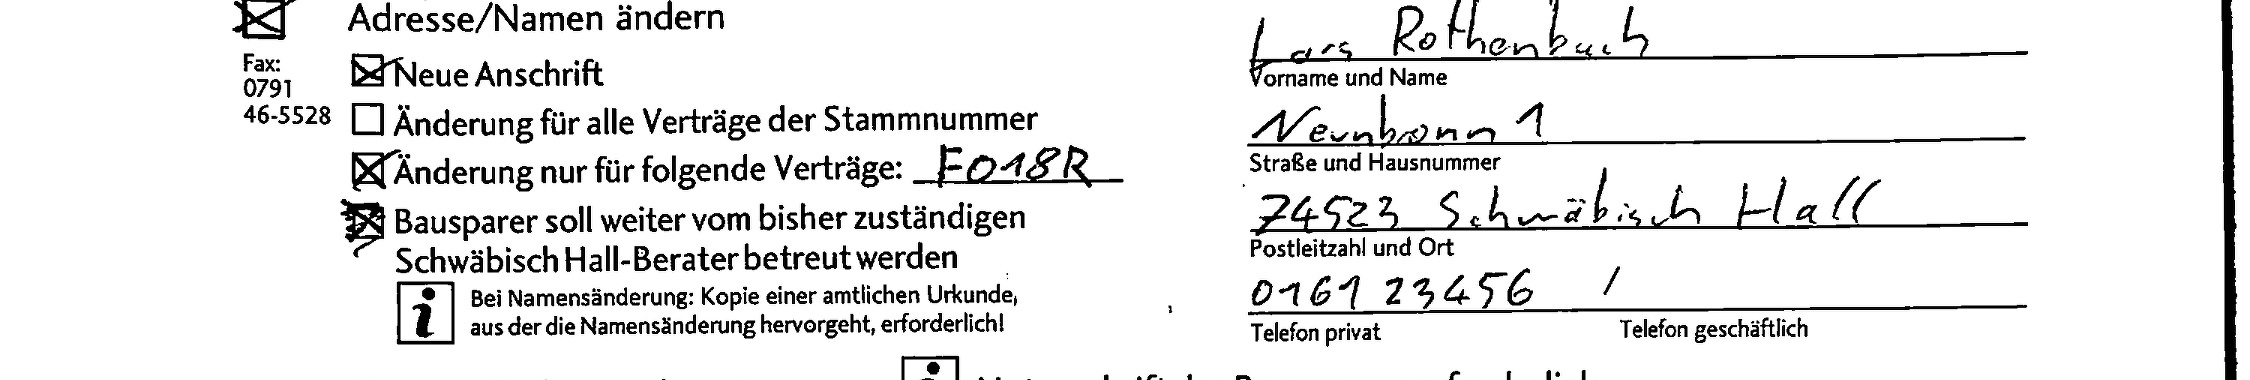 Adresse/Namen ändern
Fax:
0791
46-5528
Neue Anschrift
Änderung für alle Verträge der Stammnummer
Änderung nur für folgende Verträge: F018R
Bausparer soll weiter vom bisher zuständigen
Schwäbisch Hall-Berater betreut werden
i Bei Namensänderung: Kopie einer amtlichen Urkunde,
aus der die Namensänderung hervorgeht, erforderlich!
Lars Rothenbach
Vorname und Name
Neunbronn 1
Straße und Hausnummer
74523 Schwäbisch Hall
Postleitzahl und Ort
0161 23456 /
Telefon privat Telefon geschäftlich